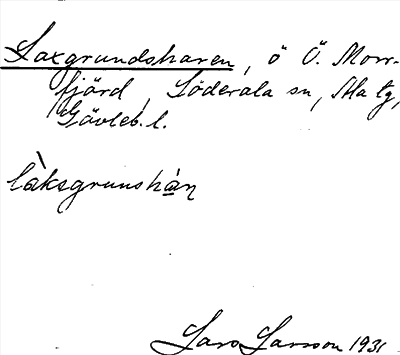 Laxgrundsharen, ö Ö. Morr-
fjärd, Söderala sn, Ala tg,
Gävleb. l.
làksgrunshán
Lars Larsson 1931